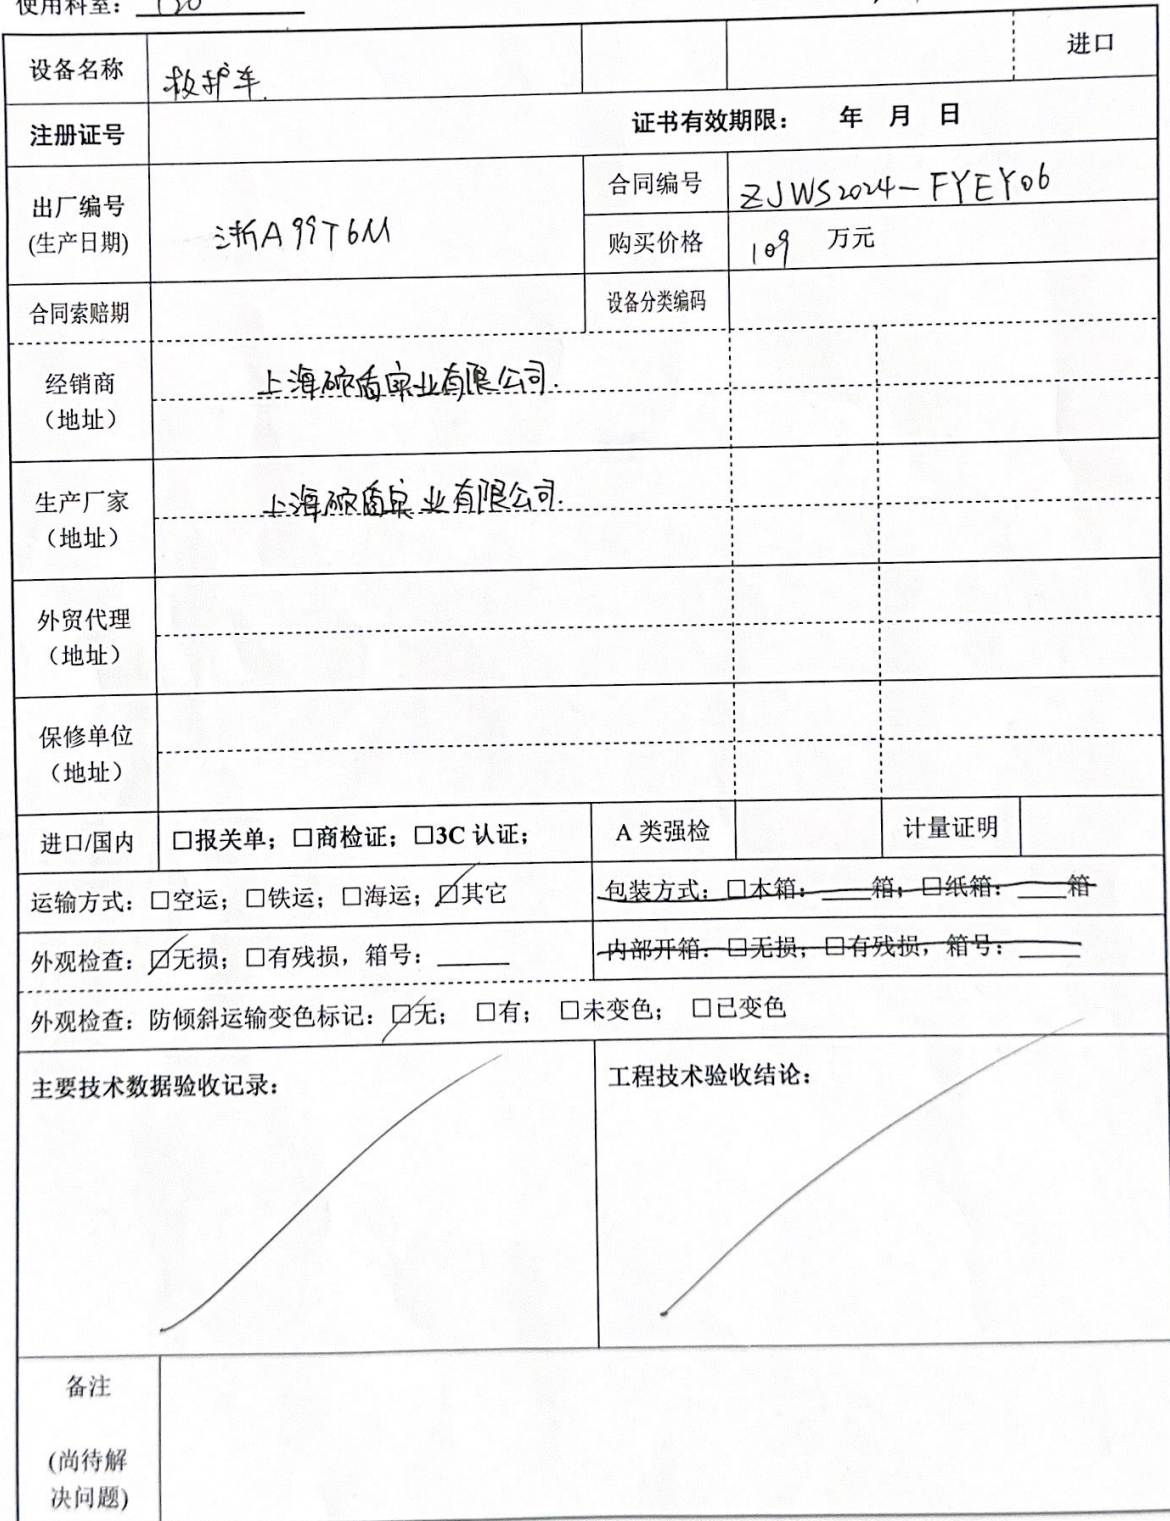 使用科室：120
设备名称 救护车 进口
注册证号 证书有效期限： 年 月 日
出厂编号 (生产日期) 浙A99T6M 合同编号 ZJWS2024-FYEY06
购买价格 109 万元
合同索赔期 设备分类编码
经销商 上海硕盾实业有限公司.
（地址）
生产厂家 上海硕盾实业有限公司.
（地址）
外贸代理
（地址）
保修单位
（地址）
进口/国内 □报关单；□商检证；□3C 认证； A 类强检 计量证明
运输方式：□空运；□铁运；□海运；☑其它 包装方式：□木箱：____箱；□纸箱：____箱
外观检查：☑无损；□有残损，箱号：______ 内部开箱：□无损；□有残损，箱号：_____
外观检查：防倾斜运输变色标记：☑无； □有； □未变色； □已变色
主要技术数据验收记录： 工程技术验收结论：
备注
(尚待解
决问题)